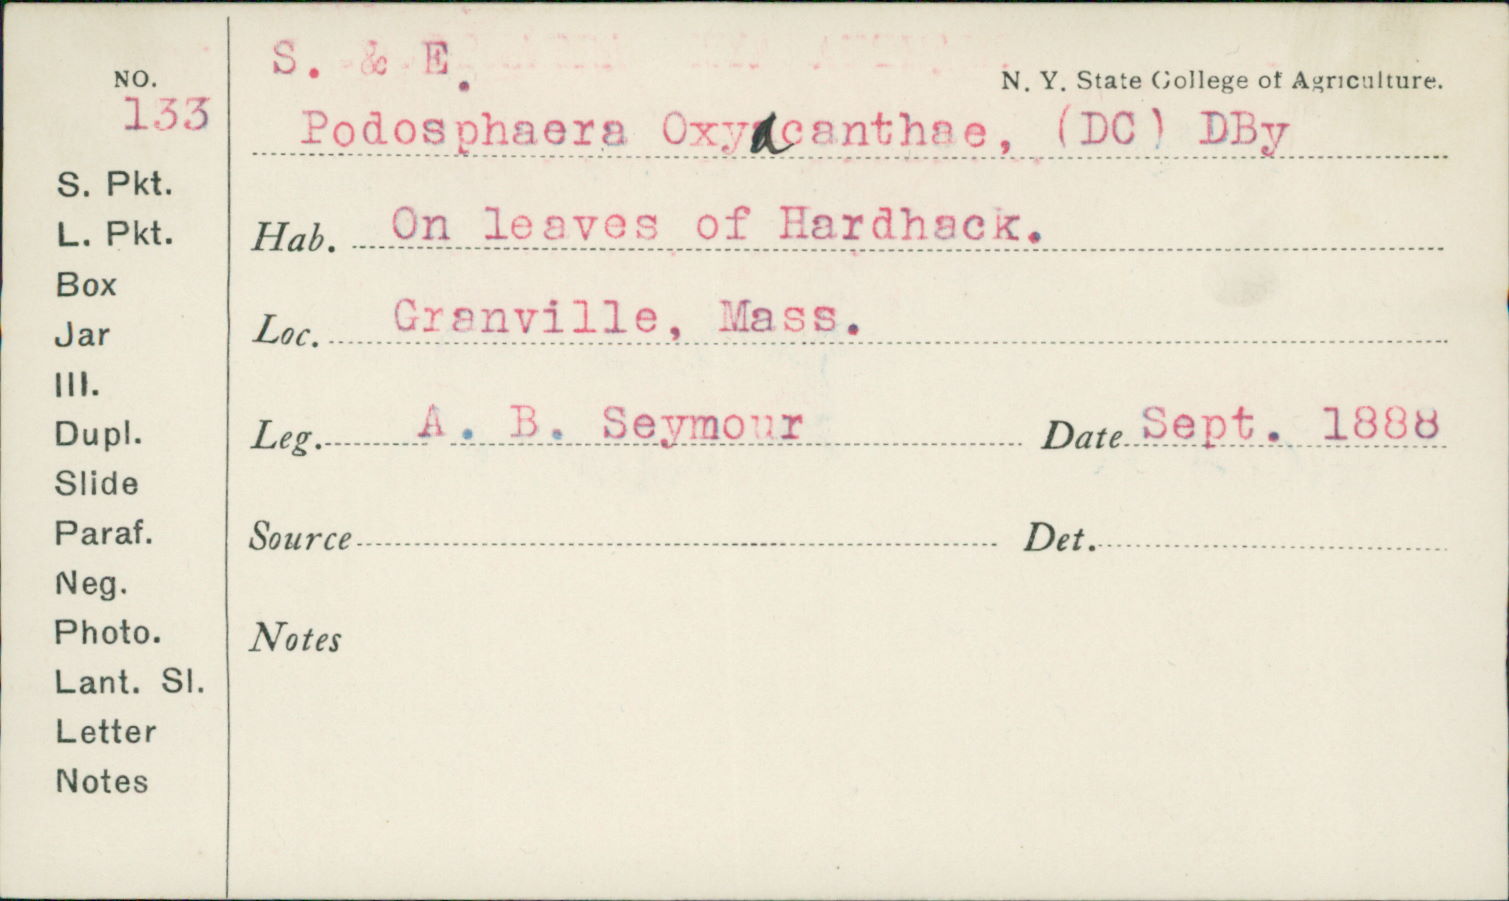 S. & E.
NO.
N. Y. State College of Agriculture.
133
Podosphaera Oxyacanthae, (DC) DBy
S. Pkt.
L. Pkt.
Hab. On leaves of Hardhack.
Box
Jar
Loc. Granville, Mass.
Ill.
Dupl.
Leg. A. B. Seymour Date Sept. 1888
Slide
Paraf.
Source Det.
Neg.
Photo.
Notes
Lant. Sl.
Letter
Notes